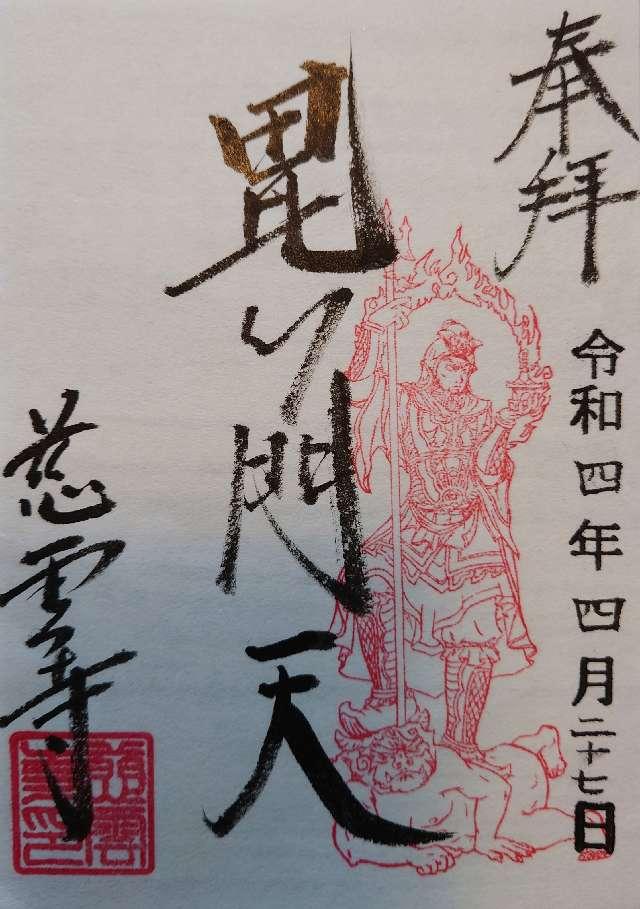 奉拝
令和四年四月二十七日
毘沙門天
慈雲寺